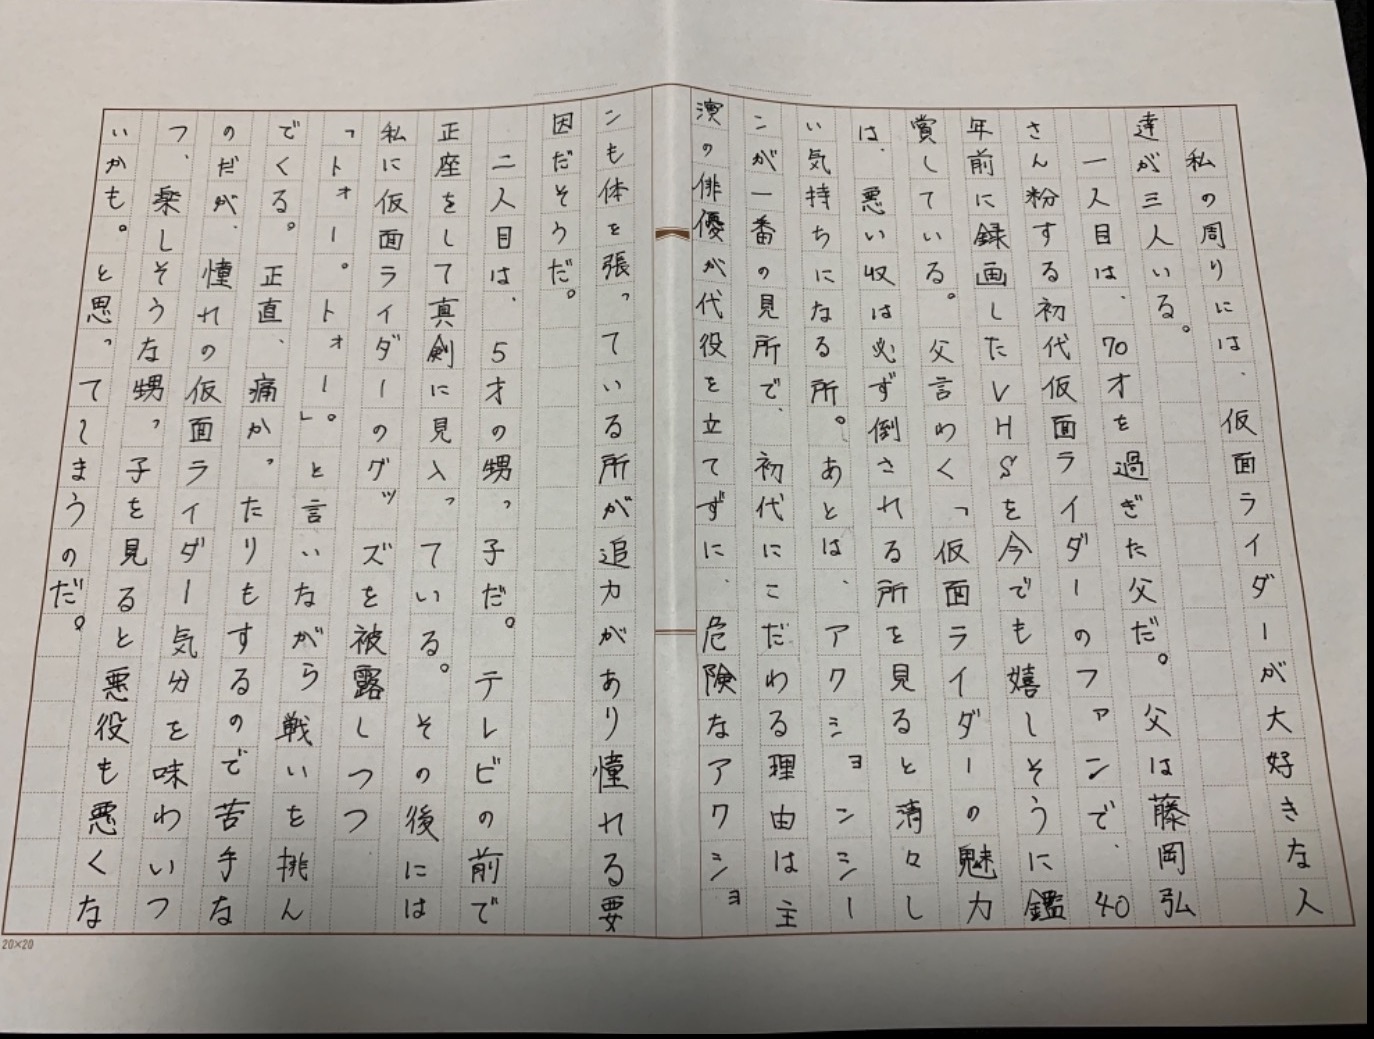 私の周りには、仮面ライダーが大好きな人
達が三人いる。
一人目は、70才を過ぎた父だ。父は藤岡弘
さん粉する初代仮面ライダーのファンで、40
年前に録画したVHSを今でも嬉しそうに鑑
賞している。父言わく「仮面ライダーの魅力
は、悪い奴は必ず倒される所を見ると清々し
い気持ちになる所。あとは、アクションシー
ンが一番の見所で、初代にこだわる理由は主
演の俳優が代役を立てずに、危険なアクショ
ンも体を張っている所が迫力があり憧れる要
因だそうだ。
二人目は、5才の甥っ子だ。テレビの前で
正座をして真剣に見入っている。その後には
私に仮面ライダーのグッズを被露しつつ
「トォー。トォー」。と言いながら戦いを挑ん
でくる。正直、痛かったりもするので苦手な
のだが、憧れの仮面ライダー気分を味わいつ
つ、楽しそうな甥っ子を見ると悪役も悪くな
いかも。と思ってしまうのだ。
20×20